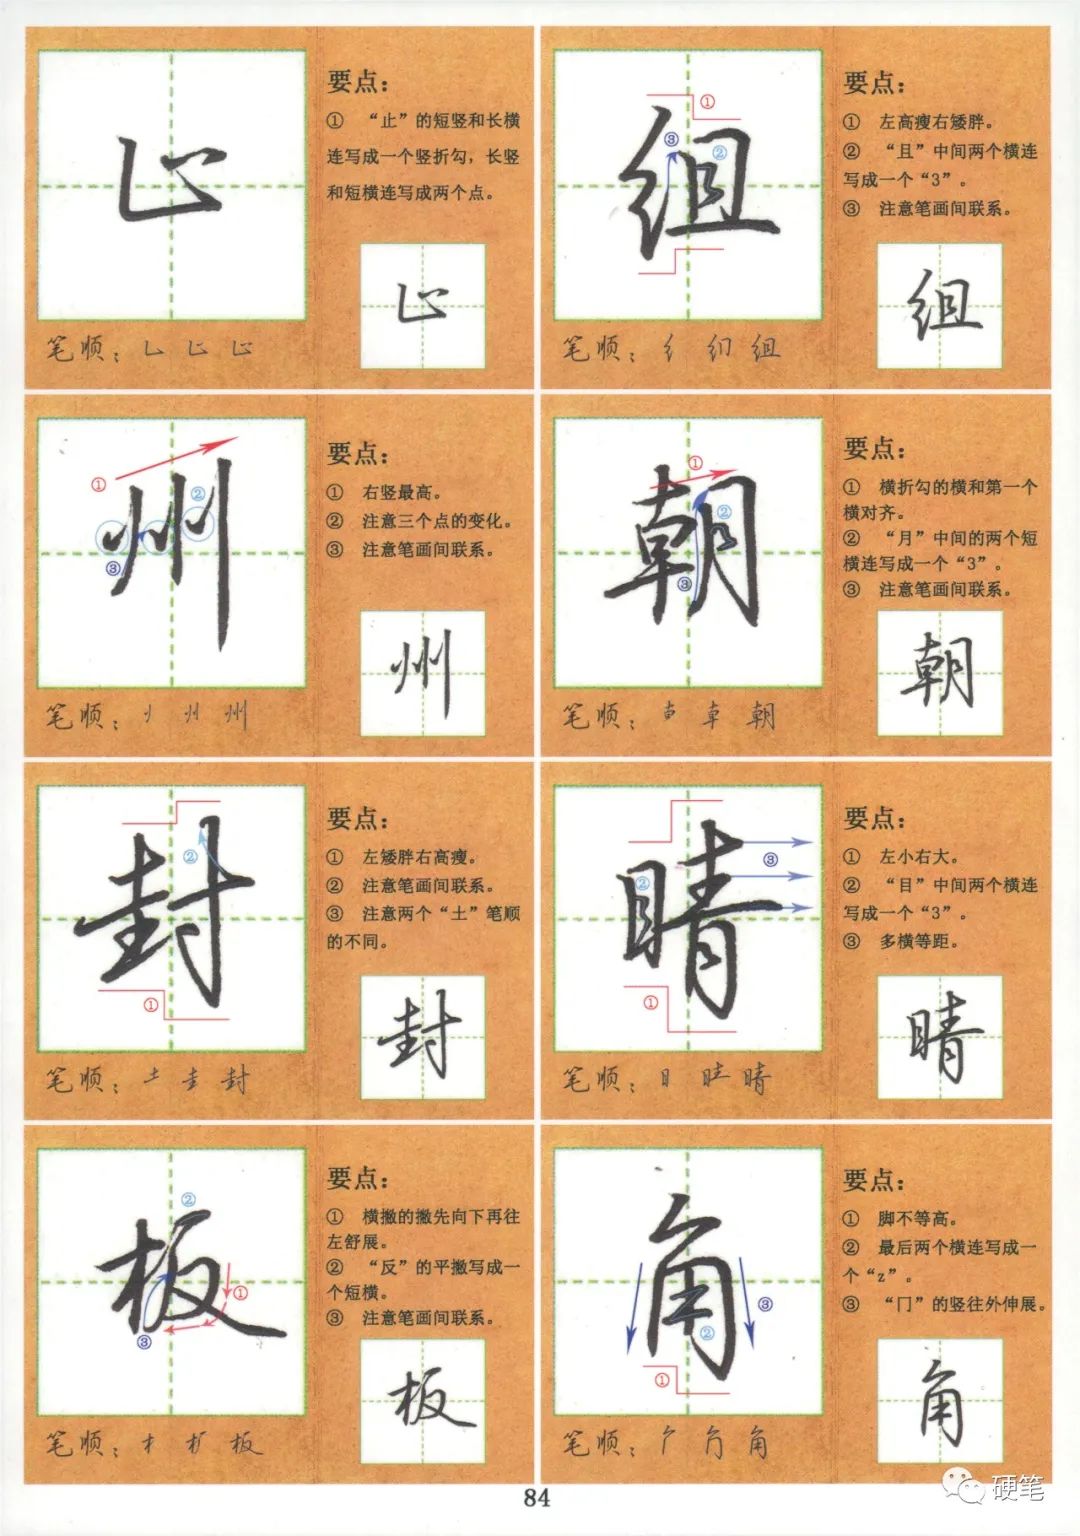 止
要点：
① “止”的短竖和长横
连写成一个竖折勾，长竖
和短横连写成两个点。
止
笔顺：
组
①
②
③
要点：
① 左高瘦右矮胖。
② “且”中间两个横连
写成一个“3”。
③ 注意笔画间联系。
组
笔顺：纟 组
州
①
②
③
要点：
① 右竖最高。
② 注意三个点的变化。
③ 注意笔画间联系。
州
笔顺：州
朝
①
②
③
要点：
① 横折勾的横和第一个
横对齐。
② “月”中间的两个短
横连写成一个“3”。
③ 注意笔画间联系。
朝
笔顺：朝
封
②
①
要点：
① 左矮胖右高瘦。
② 注意笔画间联系。
③ 注意两个“土”笔顺
的不同。
封
笔顺：土 圭 封
睛
②
③
①
要点：
① 左小右大。
② “目”中间两个横连
写成一个“3”。
③ 多横等距。
睛
笔顺：目 睛
板
②
①
③
要点：
① 横撇的撇先向下再往
左舒展。
② “反”的平撇写成一
个短横。
③ 注意笔画间联系。
板
笔顺：板
角
③
②
①
要点：
① 脚不等高。
② 最后两个横连写成一
个“z”。
③ “冂”的竖往外伸展。
角
笔顺：角
84
硬笔